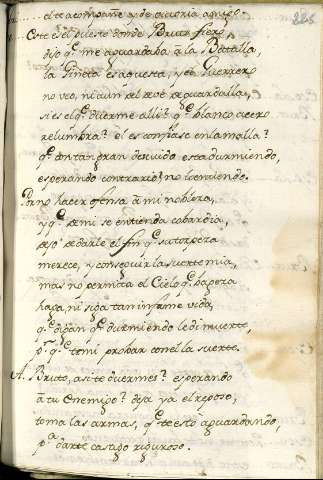 225
el te acompañe y de victoria
Este es el puesto donde Bruto fiero,
dijo q.e me aguardaba a la Batalla,
la seña es aquesta, y el Guerrero
no veo, ni aun el se ve aguardalla,
si es el q.e duerme alli? q.e blanco acero
relumbra? el es confiase en la malla?
q.e con tan gran descuido esta durmiendo,
esperando contrario? no lo entiendo.
Por no hacer ofensa â mi nobleza,
y q.e de mi se entienda cobardia,
dejo de darle el fin q.e su torpeza
merece, y conseguir la suerte mia,
mas no permita el Cielo q.e bajeza
haga, ni siga tan infame vida,
q.e digan q.e durmiendo le di muerte,
p.r q.e temi probar con el la suerte.
A. Bruto, asi te duermes? esperando
â tu enemigo? deja ya el reposo,
toma las armas, q.e te estoi aguardando
p.a darte castigo riguroso.